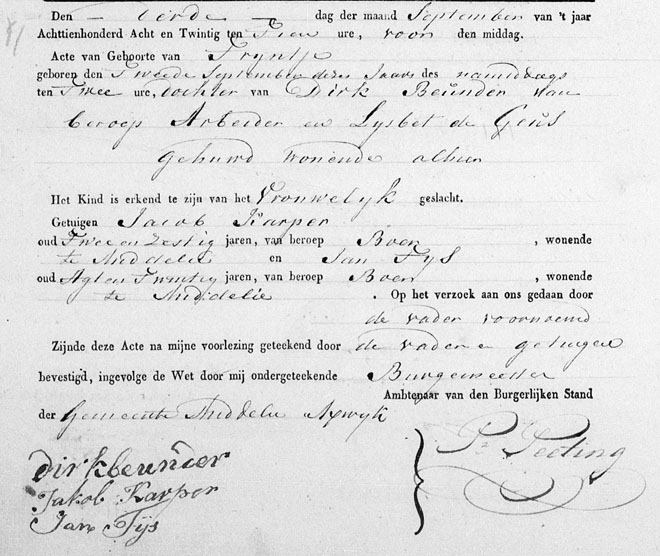 Den - derde - dag der maand September van 't jaar
Achttienhonderd Acht en Twintig ten Tien ure, voor den middag.
Acte van Geboorte van Tryntje
geboren den Tweede September dezes Jaars des namiddags
ten Twee ure, dochter van Dirk Beunder van
beroep Arbeider en Lysbet de Geus
gehuwd wonende alhier
Het Kind is erkend te zijn van het Vrouwelyk geslacht.
Getuigen Jacob Karper
oud Twee en Zestig jaren, van beroep Boer , wonende
te Middelie en Jan Tys
oud Agt en Twintig jaren, van beroep Boer , wonende
te Middelie . Op het verzoek aan ons gedaan door
de vader voornoemd
Zijnde deze Acte na mijne voorlezing geteekend door de vader en getuigen
bevestigd, ingevolge de Wet door mij ondergeteekende Burgemeester
Ambtenaar van den Burgerlijken Stand
der Gemeente Middelie Axwyk
dirk beunder
Jakob Karper
Jan Tÿs